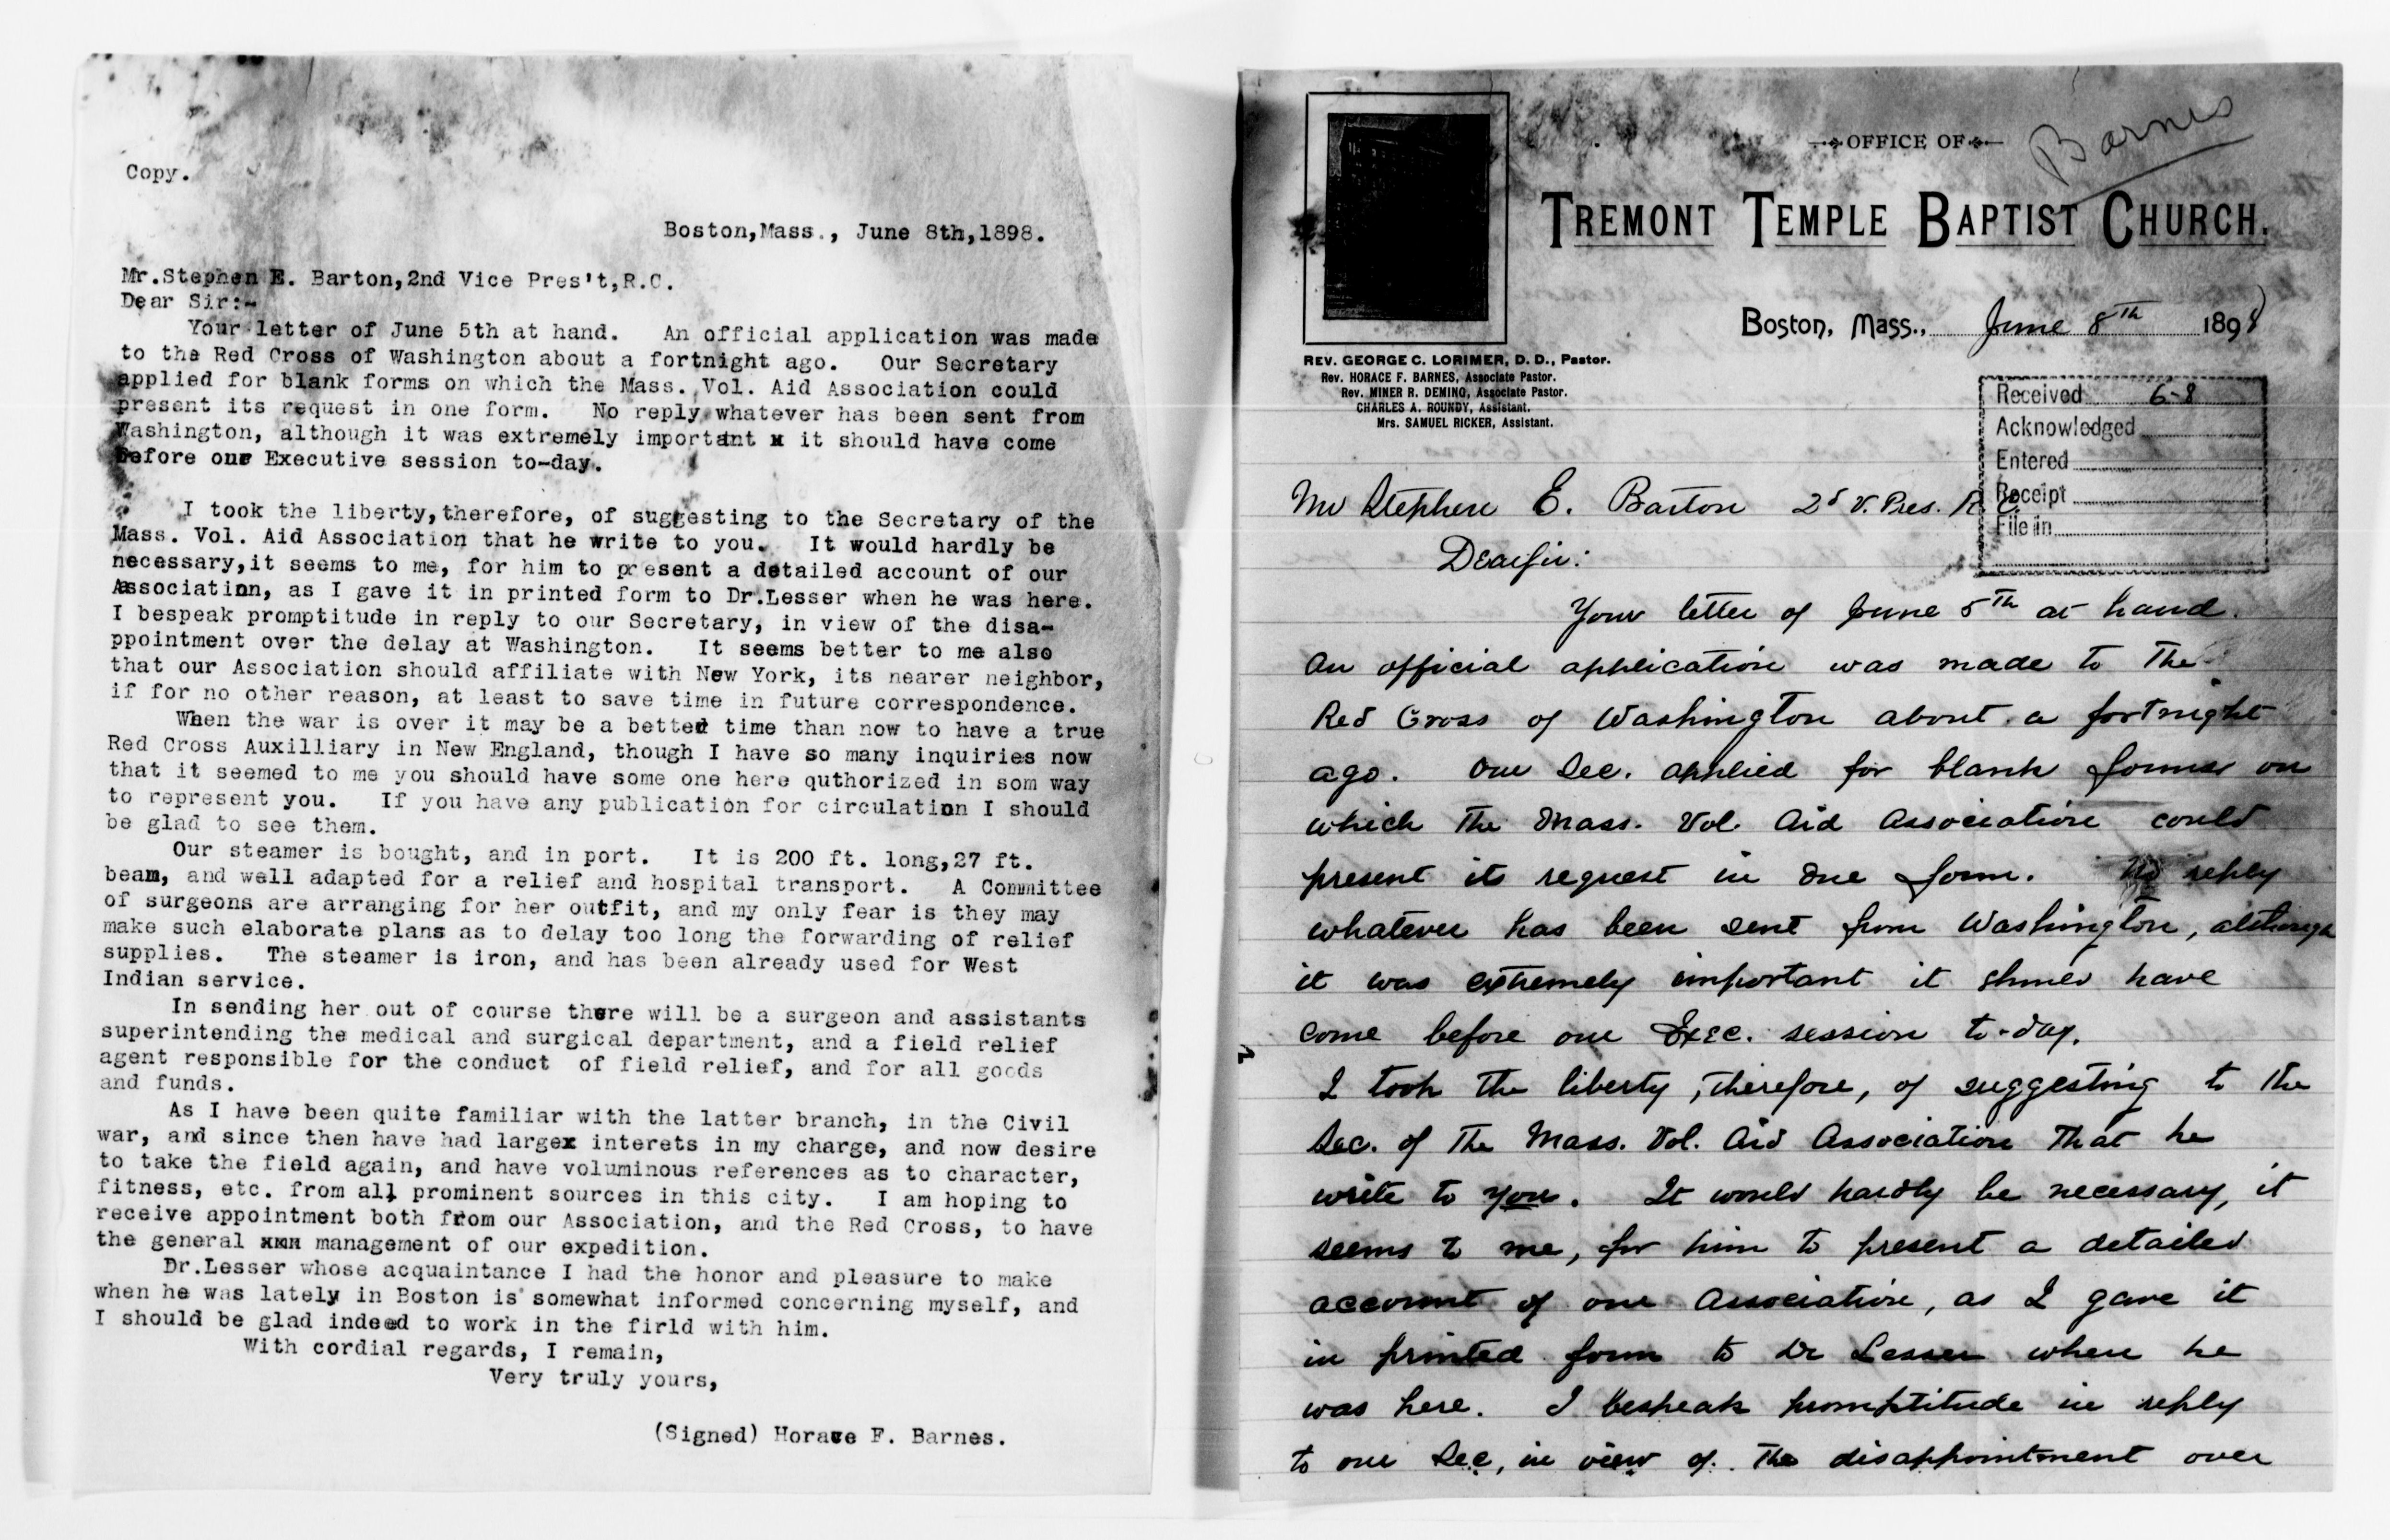 Copy.
Boston,Mass., June 8th,1898.
Mr.Stephen E. Barton,2nd Vice Pres't,R.C.
Dear Sir:-
Your letter of June 5th at hand. An official application was made
to the Red Cross of Washington about a fortnight ago. Our Secretary
applied for blank forms on which the Mass. Vol. Aid Association could
present its request in one form. No reply whatever has been sent from
Washington, although it was extremely important x it should have come
before our Executive session to-day.
I took the liberty,therefore, of suggesting to the Secretary of the
Mass. Vol. Aid Association that he write to you. It would hardly be
necessary,it seems to me, for him to present a detailed account of our
Association, as I gave it in printed form to Dr.Lesser when he was here.
I bespeak promptitude in reply to our Secretary, in view of the disa-
ppointment over the delay at Washington. It seems better to me also
that our Association should affiliate with New York, its nearer neighbor,
if for no other reason, at least to save time in future correspondence.
When the war is over it may be a better time than now to have a true
Red Cross Auxilliary in New England, though I have so many inquiries now
that it seemed to me you should have some one here quthorized in som way
to represent you. If you have any publication for circulation I should
be glad to see them.
Our steamer is bought, and in port. It is 200 ft. long,27 ft.
beam, and well adapted for a relief and hospital transport. A Committee
of surgeons are arranging for her outfit, and my only fear is they may
make such elaborate plans as to delay too long the forwarding of relief
supplies. The steamer is iron, and has been already used for West
Indian service.
In sending her out of course there will be a surgeon and assistants
superintending the medical and surgical department, and a field relief
agent responsible for the conduct of field relief, and for all goods
and funds.
As I have been quite familiar with the latter branch, in the Civil
war, and since then have had largex interets in my charge, and now desire
to take the field again, and have voluminous references as to character,
fitness, etc. from all prominent sources in this city. I am hoping to
receive appointment both from our Association, and the Red Cross, to have
the general xxxx management of our expedition.
Dr.Lesser whose acquaintance I had the honor and pleasure to make
when he was lately in Boston is somewhat informed concerning myself, and
I should be glad indeed to work in the firld with him.
With cordial regards, I remain,
Very truly yours,
(Signed) Horace F. Barnes.
Barnes
OFFICE OF
TREMONT TEMPLE BAPTIST CHURCH.
Boston, Mass., June 8th 1898
REV. GEORGE C. LORIMER, D. D., Pastor.
Rev. HORACE F. BARNES, Associate Pastor.
Rev. MINER R. DEMING, Associate Pastor.
CHARLES A. ROUNDY, Assistant.
Mrs. SAMUEL RICKER, Assistant.
Received 6-8
Acknowledged
Entered
Receipt
File in
Mr Stephen E. Barton 2d V. Pres. R. C.
Dear Sir:
Your letter of June 5th at hand.
An official application was made to the
Red Cross of Washington about a fortnight
ago. Our Sec. applied for blank forms on
which the Mass. Vol. Aid Association could
present its request in due form. No reply
whatever has been sent from Washington, although
it was extremely important it should have
come before our Exec. session to-day.
I took the liberty, therefore, of suggesting to the
Sec. of the Mass. Vol. Aid Association that he
write to you. It would hardly be necessary, it
seems to me, for him to present a detailed
account of our Association, as I gave it
in printed form to Dr Lesser when he
was here. I bespeak promptitude in reply
to our Sec, in view of the disappointment over